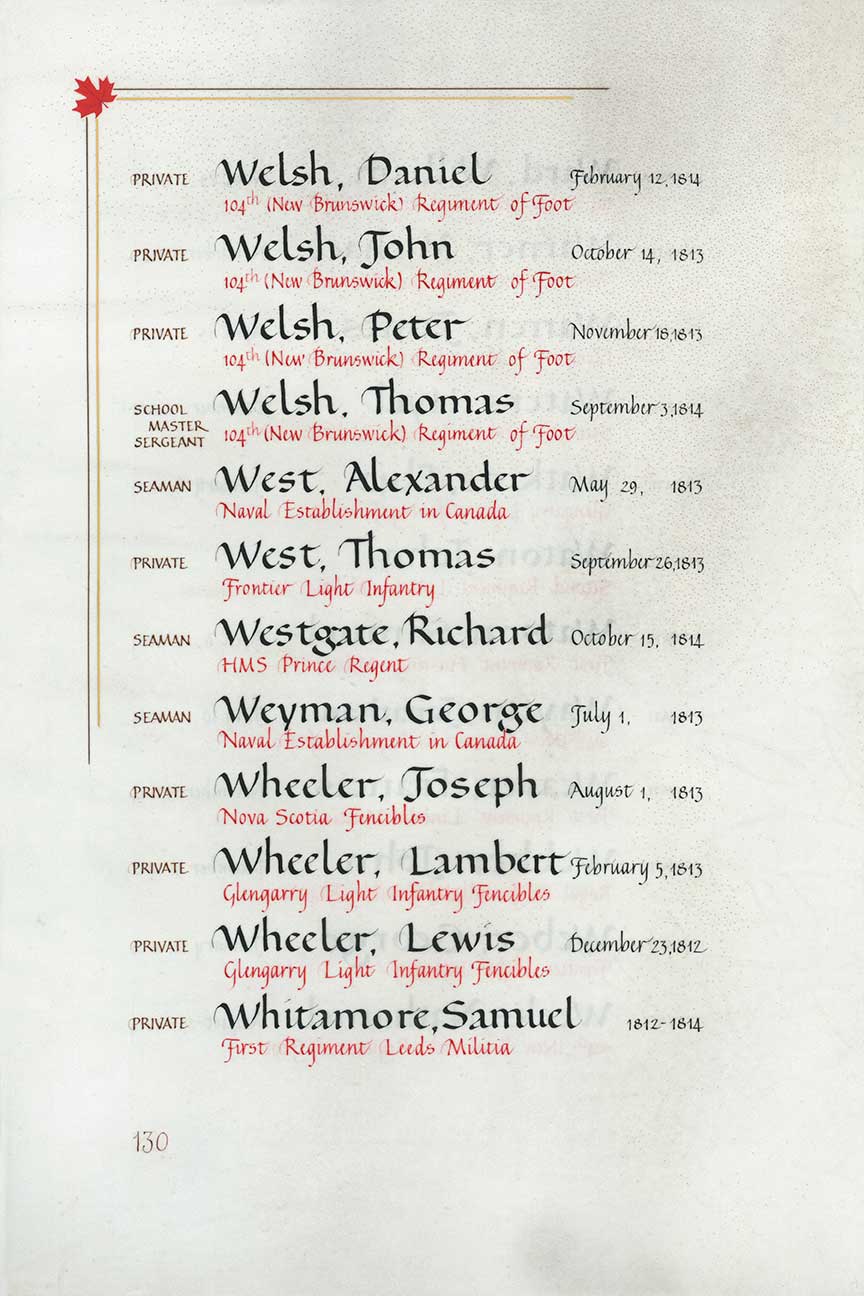 PRIVATE Welsh, Daniel February 12, 1814
104th (New Brunswick) Regiment of Foot
PRIVATE Welsh, John October 14, 1813
104th (New Brunswick) Regiment of Foot
PRIVATE Welsh, Peter November 18, 1813
104th (New Brunswick) Regiment of Foot
SCHOOL MASTER SERGEANT Welsh, Thomas September 3, 1814
104th (New Brunswick) Regiment of Foot
SEAMAN West, Alexander May 29, 1813
Naval Establishment in Canada
PRIVATE West, Thomas September 26, 1813
Frontier Light Infantry
SEAMAN Westgate, Richard October 15, 1814
HMS Prince Regent
SEAMAN Weyman, George July 1, 1813
Naval Establishment in Canada
PRIVATE Wheeler, Joseph August 1, 1813
Nova Scotia Fencibles
PRIVATE Wheeler, Lambert February 5, 1813
Glengarry Light Infantry Fencibles
PRIVATE Wheeler, Lewis December 23, 1812
Glengarry Light Infantry Fencibles
PRIVATE Whitamore, Samuel 1812-1814
First Regiment Leeds Militia
130